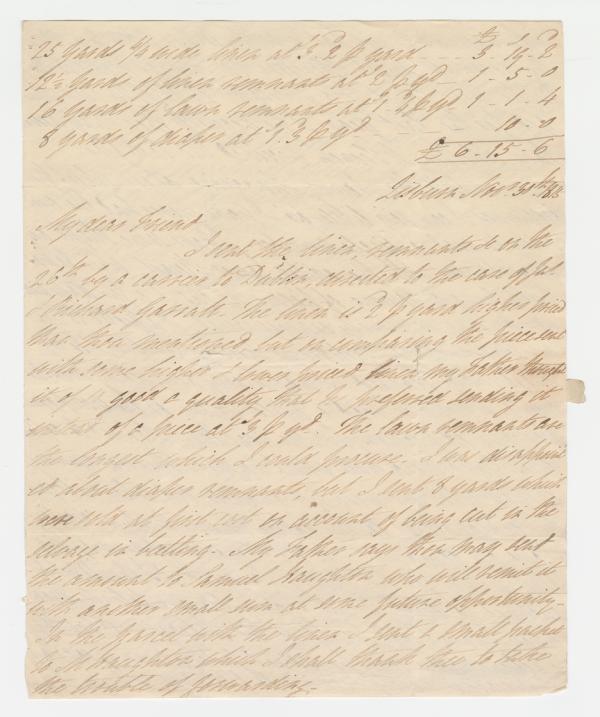 25 yards 4/4 wide linen at 3/2 p yard - - - £3 - 19 - 2
12½ yards of linen remnant at 2/ p yd - 1 - 5 - 0
16 yards of lawn remnant at 1/ p yd 1 - 1 - 4
8 yards of diaper at 1/3 p yd - - 10 - 0
£ 6 - 15 - 6
Lisburn Nov 30th
My dear Friend
I sent the linen, remnants &c on the
26th by a carrier to Dublin, directed to the care of Jos
& Richard Garratt. The linen is 2 p yard higher priced
than thou mentioned but on comparing the piece sent
with some higher & lower priced linen my Father thought
it of so good a quality that he preferred sending it
instead of a piece at 3/ p yd. The lawn remnants are
the longest which I could procure. I was disappoint
ed about diaper remnants, but I sent 8 yards which
were sold at first cost on account of being cut in the
selvage in beetling. My Father says thou may send
the amount to Samuel Haughton who will remit it
with another small sum at some future opportunity -
In the parcel with the linen I sent a small parcel
to M Haughton which I shall thank thee to take
the trouble of forwarding -